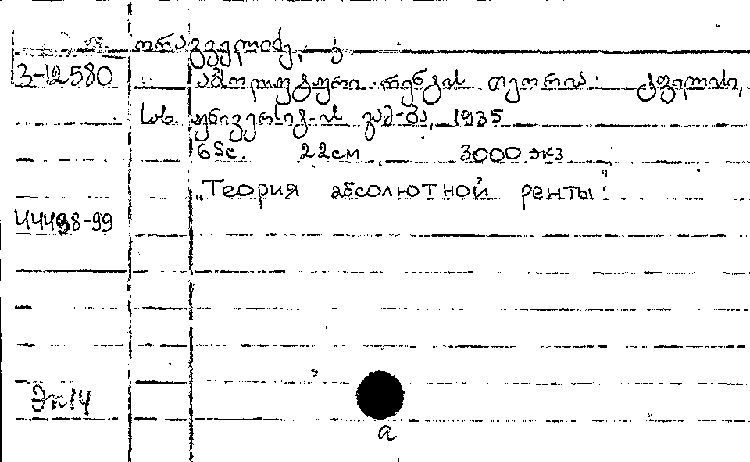 თრაველიძე, კ
3-12580 აბსოლუტური რენტის თეორია. ტფილისი,
სახ. უნივერსიტ-ის გამ-ბა, 1935
65с. 22см 3000 экз
„Теория абсолютной ренты".
44498-99
Эп14
a